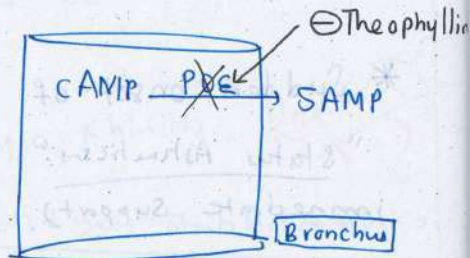 ⊖Theophyllin
cAMP PDE → 5AMP
Bronchus